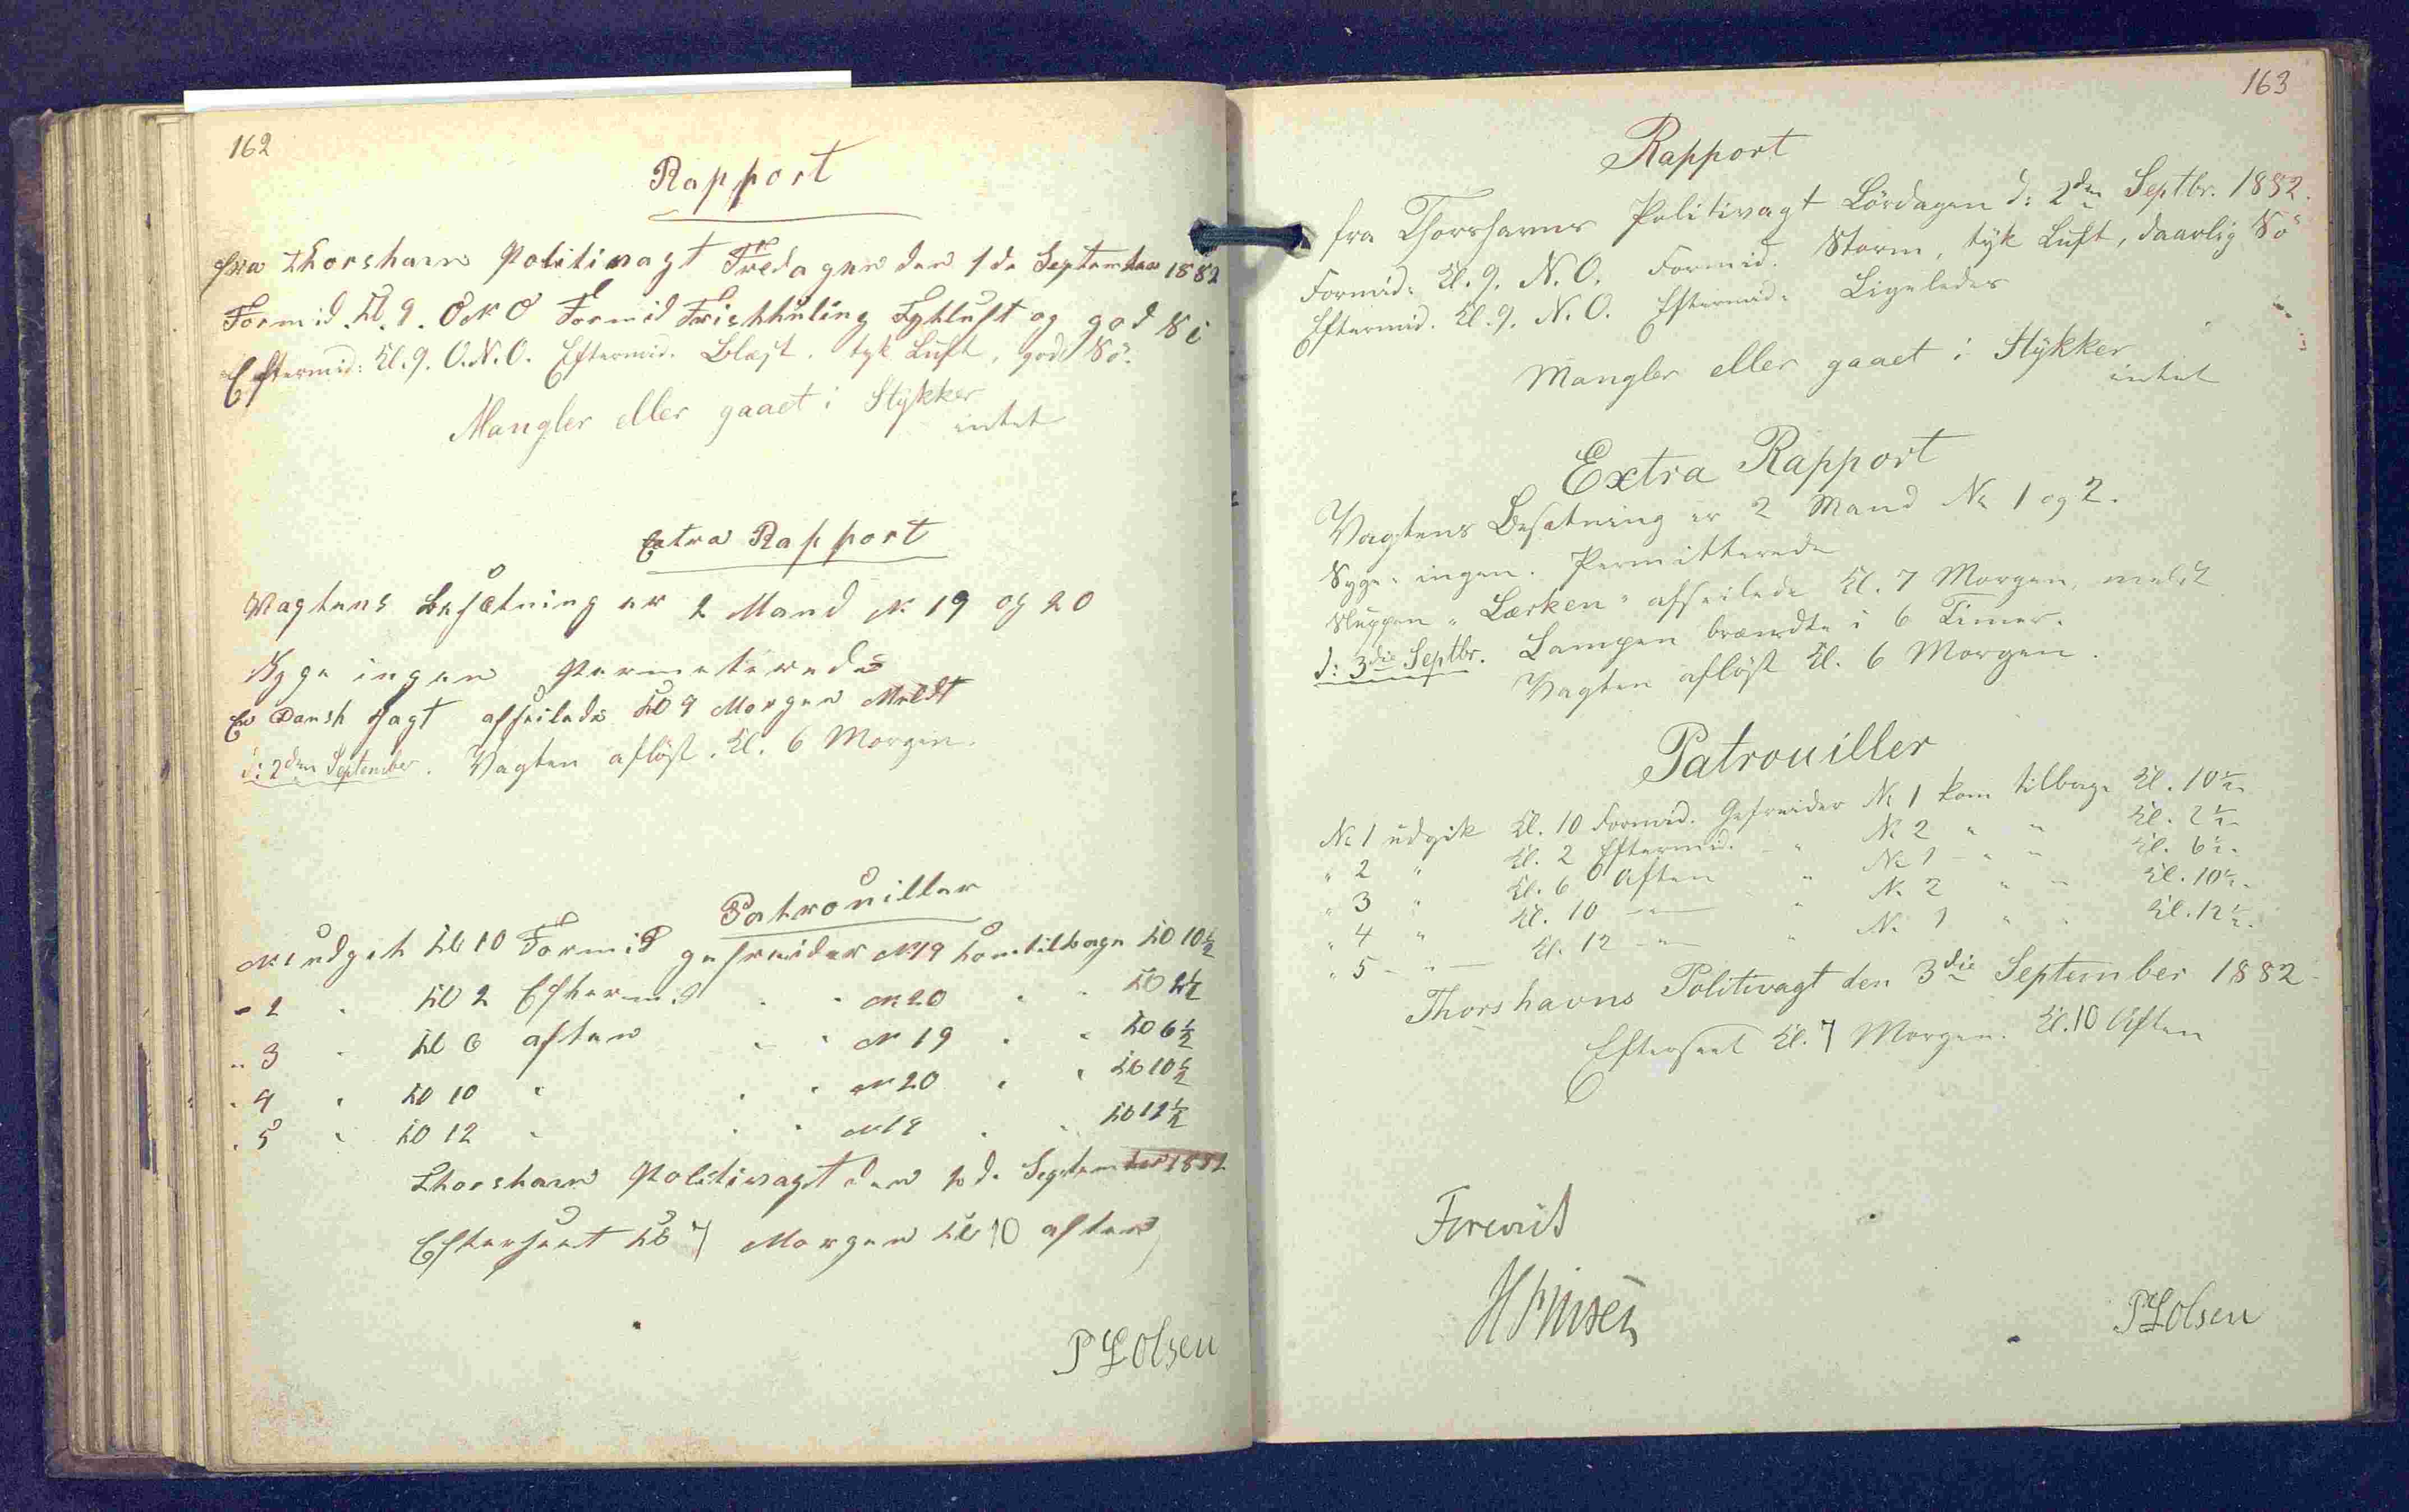 162
Rapport
fra Thorshavn Politivagt Fredagen den 1de September 1882
Formid. Kl. 9. ONO Formid Friskkuling Tykluft og god Sö
Eftermid: Kl. 9. O.N.O. Eftermid. Blæst. tyk Luft, god Sö.
Mangler eller gaaet i Stykker
intet
Extra Rapport
Vagtens Besætning er 2 Mand N. 19 og 20
Syge ingen Permeterede
En Dansk Jagt afseilede Kl 9 Morgen Meldt
d: 2den September. Vagten aflöst. Kl. 6 Morgen.
Patrouiller
N 1 udgik Kl 10 Formid gefreider N 19 kom tilbage Kl 10½
" 2 " Kl 2 Eftermid " " N 20 " " Kl 2½
" 3 " Kl 6 aften " " N 19 " " Kl 6½
" 4 " Kl 10 " " " N 20 " " Kl 10½
" 5 " Kl 12 " " " N 19 " " Kl 12½
Thorshavn Politivagt den 2de September 1882
Efterseet Kl 7 Morgen Kl 10 aften
P L Olsen
163
Rapport
fra Thorshavns Politivagt Lördagen d: 2den Septbr. 1882.
Formid. Kl. 9. N.O. Formid. Storm, tyk Luft, daarlig Sö
Eftermid. Kl. 9. N.O. Eftermid. Ligeledes
Mangler eller gaaet i Stykker
intet
Extra Rapport
Vagtens Besætning er 2 Mand No 1 og 2.
Syge: ingen. Permitterede
Sluppen "Lærken" afseilede Kl. 7 Morgen, meldt
d: 3die Septbr. Lampen brændte i 6 Timer.
Vagten aflöst Kl. 6 Morgen.
Patrouiller
No 1 udgik Kl. 10 Formid. Gefreider No 1 kom tilbage Kl. 10½
" 2 " Kl. 2 Eftermid. " No 2 " " Kl. 2½
" 3 " Kl. 6 Aften " No 1 " " Kl. 6½
" 4 " Kl. 10 — " — " No 2 " " Kl. 10½
" 5 — " — Kl. 12 — " — " No 1 " " Kl. 12½
Thorshavns Politivagt den 3die September 1882
Efterseet Kl. 7 Morgen. Kl. 10 Aften
Forevist
P L Olsen